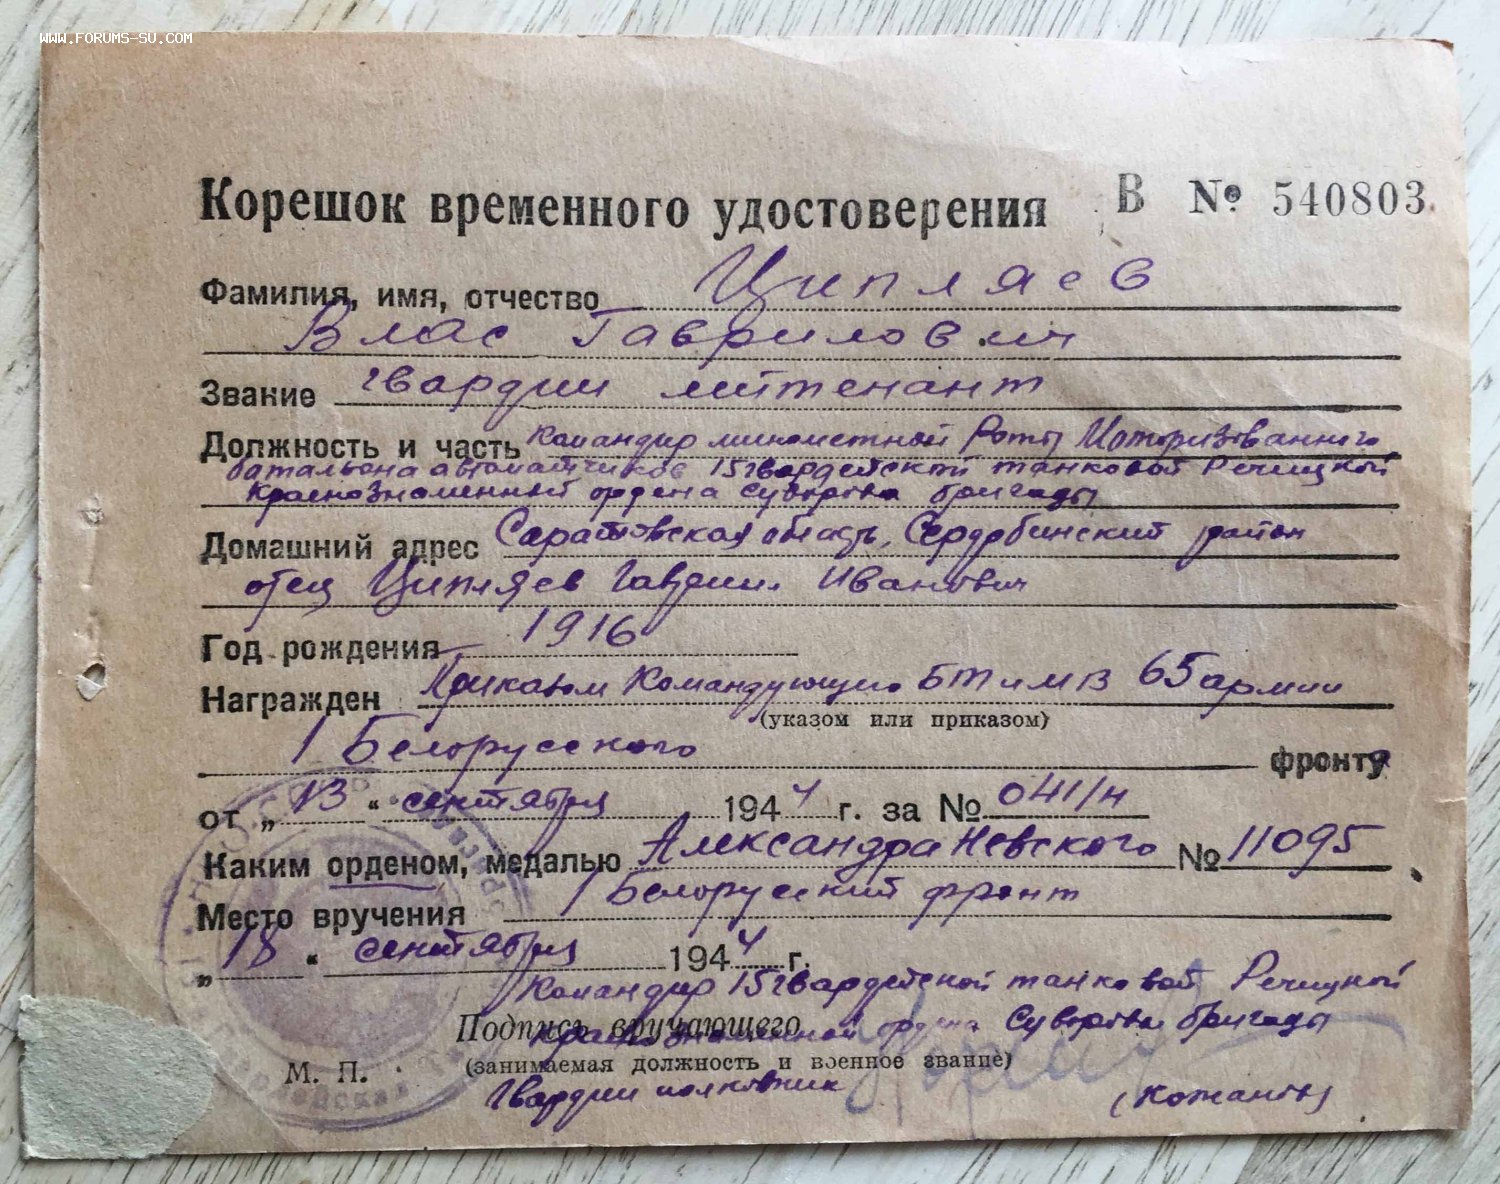 WWW.FORUMS-SU.COM
Корешок временного удостоверения В № 540803
Фамилия, имя, отчество Ципляев
Влас Гаврилович
Звание гвардии лейтенант
Должность и часть командир минометной Роты Моторизованного
батальона автоматчиков 15 гвардейской танковой Речицкой
Краснознаменный ордена Суворова бригады
Домашний адрес Саратовская область, Сердобинский район
отец Ципляев Гаврил Иванович
Год рождения 1916
Награжден Приказом Командующего БТ и МВ 65 армии
(указом или приказом)
1 Белорусского фронту
от „13“ сентября 1944 г. за № 041/н
Каким орденом, медалью Александра Невского № 11095
Место вручения 1 Белорусский фронт
„18“ сентября 1944 г.
Командир 15 гвардейской танковой Речицкой
Подпись вручающего
Краснознаменной ордена Суворова бригады
М. П. (занимаемая должность и военное звание)
Гвардии полковник (Кожанов)